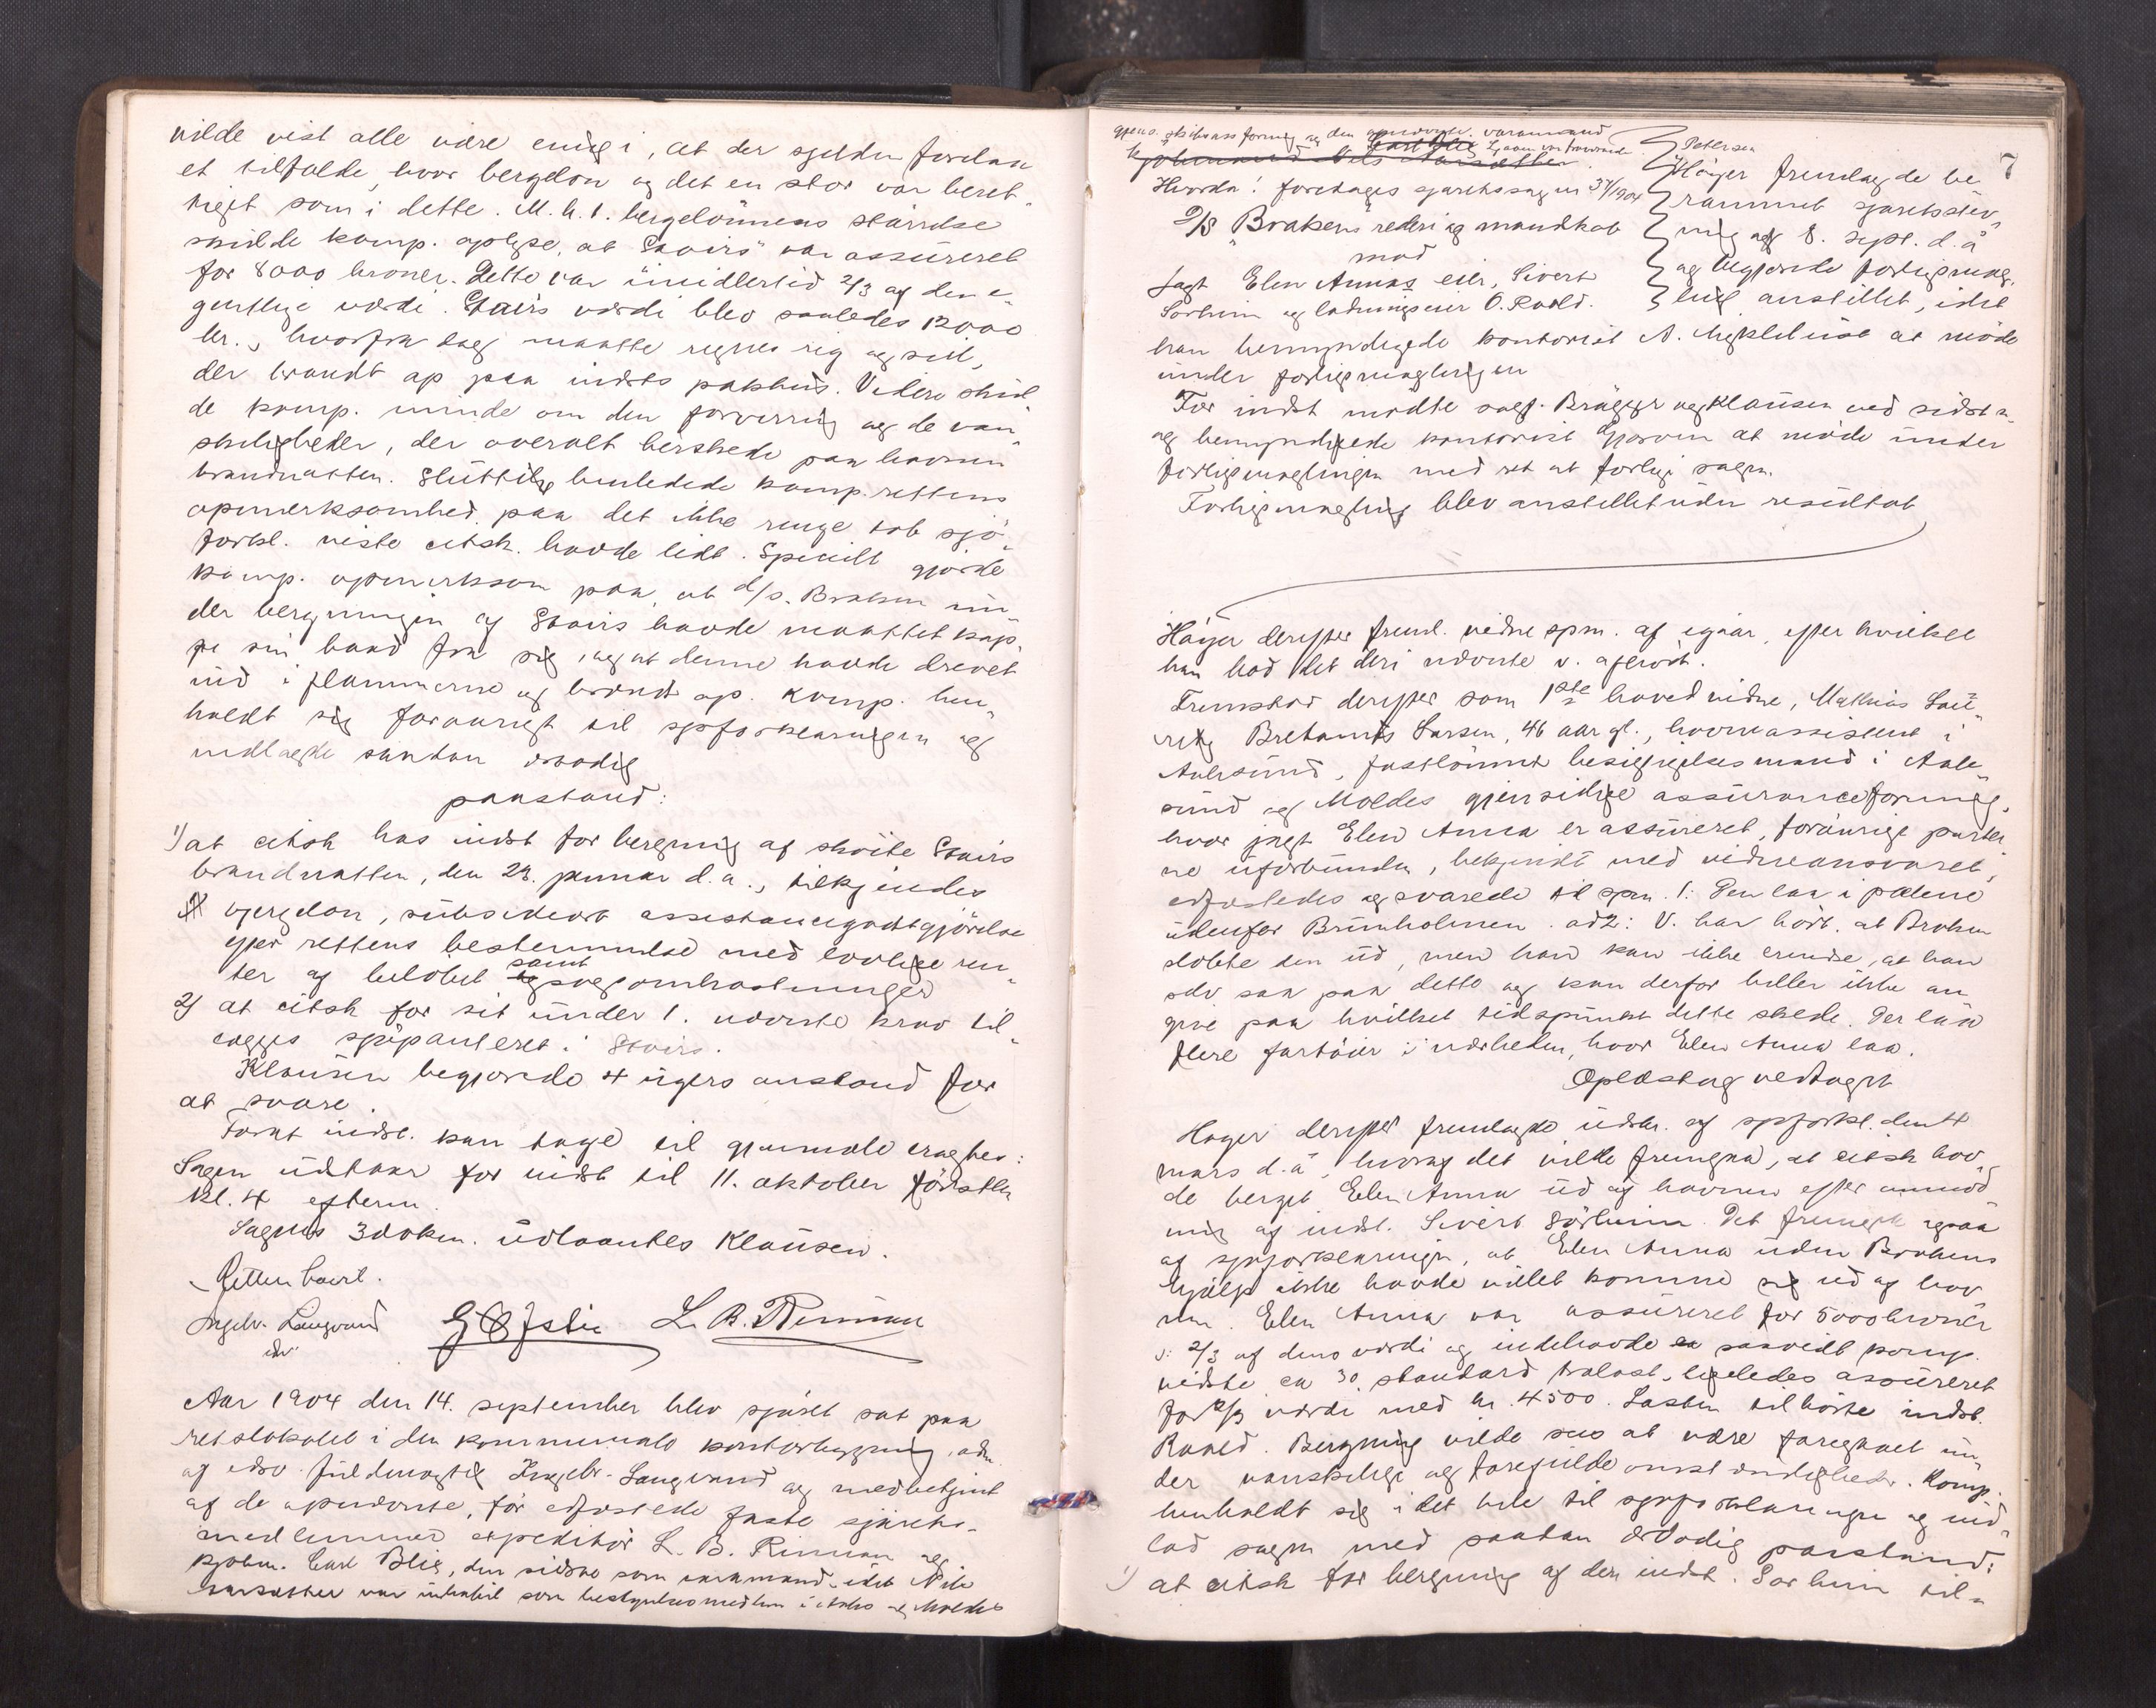 vilde vist alle være enig i, at der sjelden forelaa
et tilfælde, hvor bergelön og det en stor var beret-
tiget som i dette. M. h. t. bergelönnens störrelse
skulde komp. oplyse, at "Stairs" var assureret
for 8000 kroner. Dette var imidlertid 2/3 af den e-
gentlige værdi. Stairs værdi blev saaledes 12000
kr., hvorfra dog maatte regnes rig og seil,
der brændt op paa indsts pakhus. Videre skul-
de komp. minde om den forvirring og de van-
skeligheder, der overalt herskede paa havnen
brandnatten. Sluttelig henledede komp. rettens
opmerksomhed paa det ikke ringe tab sjö-
forkl. viste citsk. havde lidt. Specielt gjorde
komp. opmerksom paa, at d/s. Braken un-
der bergningen af Stairs havde maattet kap-
pe sin baad fra sig, og at denne havde drevet
ind i flammerne og brændt op. Komp. hen-
holdt sig forövrigt til sjöforklaringen og
nedlagde saadan
paastand:
1) at citsk hos indst for bergning af skölte Stairs
brandnatten, den 23. januar d.a., tilkjendes
bergelön, subsidiært assistancegodtgjörelse
efter rettens bestemmelse med lovlige ren-
ter af belöbet samt sagsomkostninger
2) at citsk for sit under 1. nævnte krav til-
lægges sjöpanteret i Stairs.
Klausen begjærede 4 ugers anstand for
at svare.
Forat indst. kan tage til gjenmæle eragtes:
Sagen udstaar for indst til 11. oktober förstk
kl. 4 efterm.
Sagens 3 dokm. udlaantes Klausen.
Retten hævet.
Ingebr. Langvand L. B. Rinnan
edsv.
Aar 1904 den 14. september blev sjöret sat paa
retslokalet i den kommunale kontorbygning, adm.
af edsv. fuldmægtig Ingebr. Langvand og medbetjent
af de opnævnte, för edfæstede faste sjörets-
medlemmer expeditör L. B. Rinnan og
kjöbm. Carl Blix, den sidste som varamand, idet Nils
var inhabil som bestyrelsesmedlem i Aales. og Moldes
7
gjens. skibsass. forening og den opnævnte varamand
Petersen
Hvorda! foretages sjöretssagen 37/1904
D/S "Brakens" rederi og mandskab
mod
Jagt Elen Annas eier, Sivert
Sörheim og ladningseier O. Roald.
Höyer fremlagde be-
rammet sjöretsstev-
ning af 8. sept. d.a.
og begjærede forligsmæg-
ling anstillet, idet
han bemyndigede kontorist A. Myklebust at möde
under forligsmæglingen
For indst mödte sagf. Brügger og Klausen ved sidstn.
og bemyndigede kontorist at möde under
forligsmæglingen med ret at forlige sagen.
Forligsmægling blev anstillet uden resultat
Höyer derefter freml. vidne spm. af igaar, efter hvilket
han bad det deri nævnte v. afhört.
Fremstod derefter som 1ste hovedvidne, Mathias Lau-
ritz Larsen, 46 aar gl., havneassistent i
Aalesund, fastlönnet besigtigelsesmand i Aale-
sund og Moldes gjensidige assuranceforening,
hvor jagt Elen Anna er assureret, forövrigt parter-
ne uforbunden, bekjendt med vidneansvaret,
edfæstedes og svarede til spm. 1: Den laa i pælene
udenfor Brunholmen. ad2: V. har hört, at Braken
slæbte den ud, men han kan ikke erindre, at han
selv saa paa dette og kan derfor heller ikke an-
give paa hvilket tidspunkt dette skede. Der laa
flere fartöier i nærheden, hvor Elen Anna laa.
Oplæst og vedtaget
Höyer derefter fremlagde udskr. af sjöforkl. den 4
mars d.a., hvoraf det vilde fremgaa, at citsk hav-
de berget Elen Anna ud af havnen efter anmod-
ning af indst. Sivert Sörheim. Det fremgik ogsaa
af sjöforklaringen, at Elen Anna uden Brakens
hjælp ikke havde villet komme sig ud af hav-
nen. Elen Anna var assureret for 5000 kroner
ɔ: 2/3 af dens værdi og indehavde saavidt komp.
vidste ca 30 standard trælast, ligeledes assureret
for 2/3 værdi med kr. 4500. Lasten tilhörte indst.
Roald. Bergning vilde sees at være foregaaet un-
der vanskelige og farefulde omstændigheder. Komp.
henholdt sig i det hele til sjöforklaringen og ind-
lod sagen med saadan ærbödig paastand:
1) at citsk for bergning af den indst. Sörheim til-